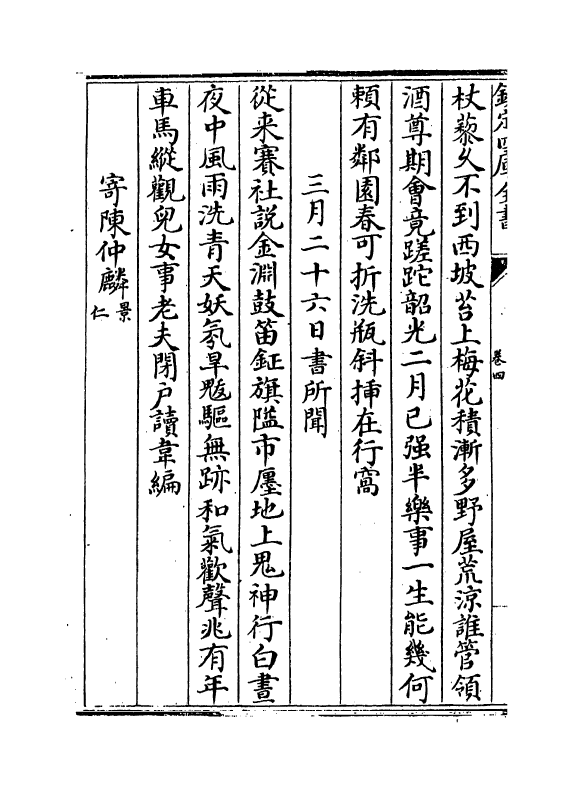 欽定四庫全書
卷四
杖藜久不到西坡苔上梅花積漸多野屋荒涼誰管領
酒尊期會竟蹉跎韶光二月已强半樂事一生能幾何
頼有鄰園春可折洗瓶斜揷在行窩
三月二十六日書所聞
從来賽社説金淵鼓笛鉦旗隘市廛地上鬼神行白晝
夜中風雨洗青天妖氛旱魃驅無跡和氣歡聲兆有年
車馬縱觀兒女事老夫閉戶讀韋編
寄陳仲麟景仁